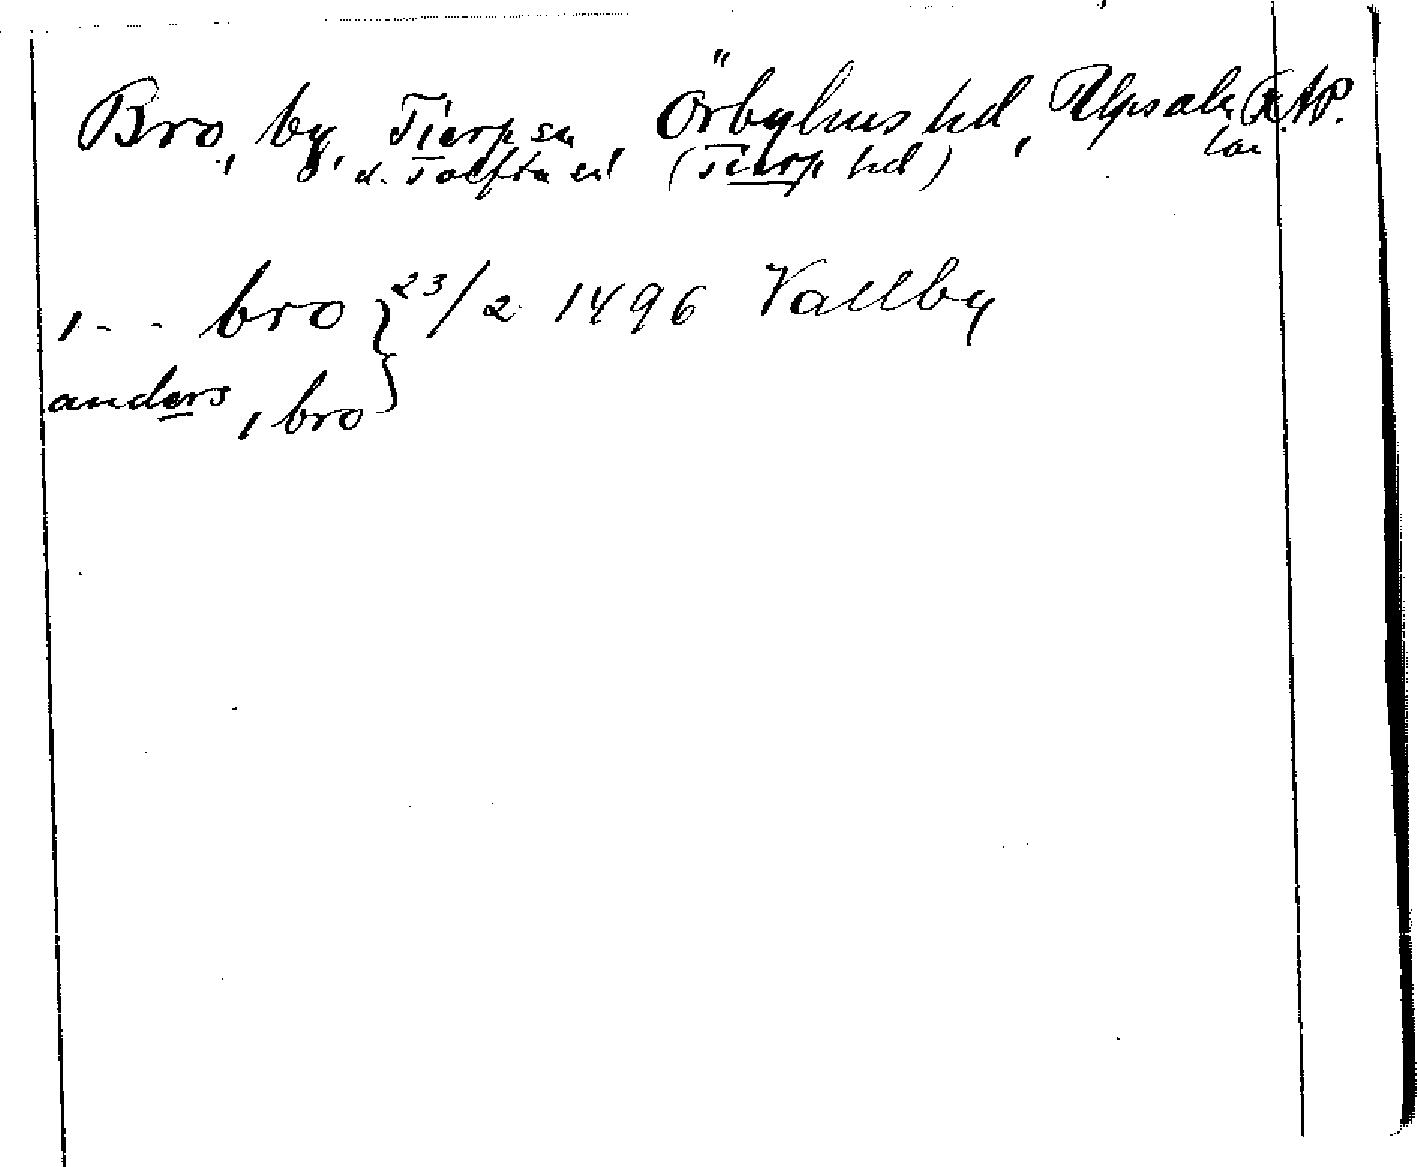 Bro, by, Tierp sn, Örbyhus hd, Upsala län RAP.
d. Tolfta sn (Tierp hd)
i - - bro } 23/2 1496 Vallby
anders i bro